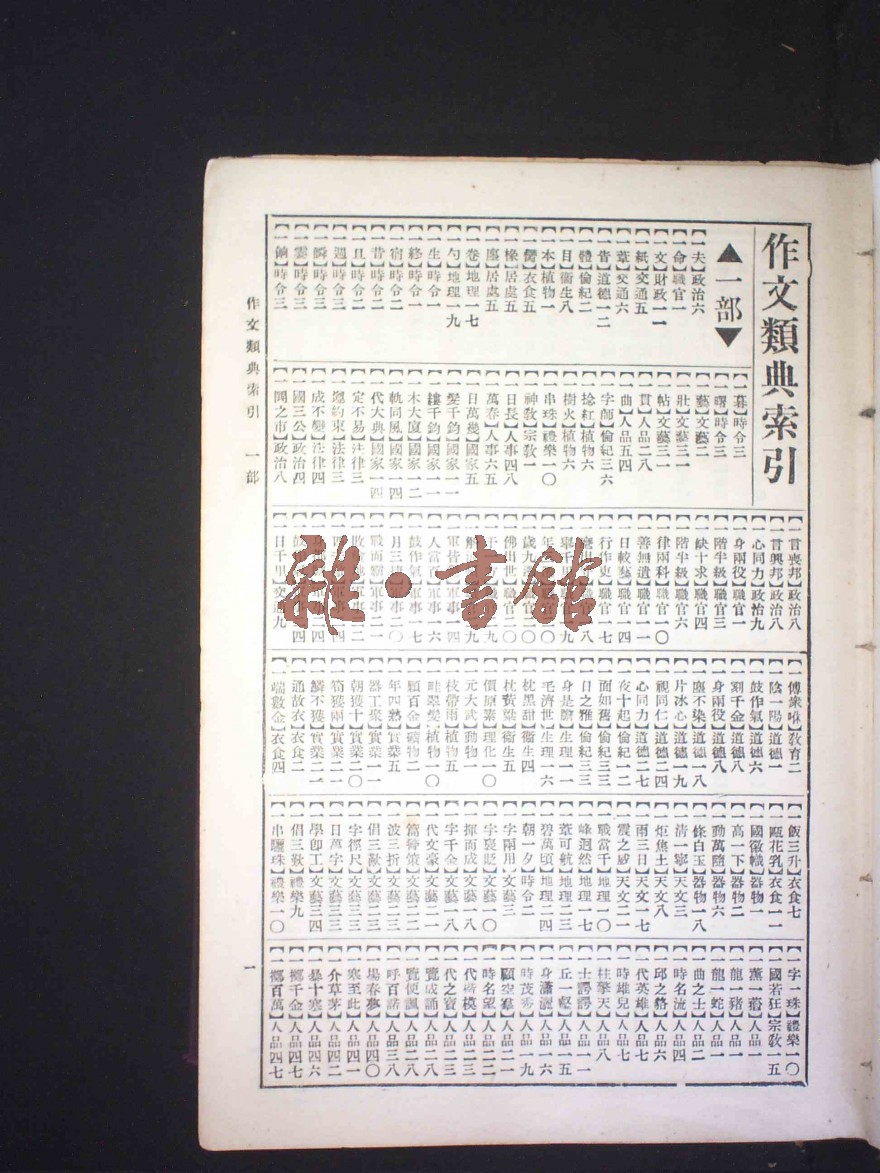 作文類典索引
▲一部▼
【一夫】政治六
【一命】職官一
【一文】財政一一
【一紙】交通五
【一葦】交通六
【一眚】道德一二
【一體】倫紀二
【一目】衞生八
【一本】植物一
【一臠】衣食五
【一椽】居處五
【一廛】居處五
【一卷】地理一七
【一勺】地理一九
【一生】時令一
【一終】時令一
【一宿】時令二
【一昔】時令二
【一旦】時令二
【一週】時令三
【一瞬】時令三
【一霎】時令三
【一餉】時令三
【一暮】時令三
【一曙】時令三
【一藝】文藝二
【一壯】文藝三一
【一帖】文藝三一
【一貫】人品二八
【一曲】人品五四
【一字師】倫紀三六
【一捻紅】植物六
【一樹火】植物六
【一串珠】禮樂一〇
【一神敎】宗敎一
【一日長】人事四八
【一萬春】人事六五
【一日萬幾】國家五
【一髮千鈞】國家一一
【一縷千鈞】國家一一
【一木大廈】國家一二
【一軌同風】國家一四
【一代大典】國家一四
【一定不易】法律三
【一遵約束】法律三
【一成不變】法律四
【一國三公】政治四
【一鬨之市】政治八
【一言喪邦】政治八
【一言興邦】政治八
【一心同力】政治九
【一身兩役】職官一
【一階半級】職官三
【一缺十求】職官四
【一階半級】職官六
【一律兩科】職官一〇
【一善無遺】職官一一
【一日較藝】職官一四
【一行作吏】職官一七
【一月三捷】軍事二〇
【一戰而霸】軍事二一
【一日千里】交通九
【一傅衆咻】敎育二
【一陰一陽】道德一
【一鼓作氣】道德六
【一劑千金】道德八
【一身兩役】道德八
【一塵不染】道德一八
【一片冰心】道德一九
【一視同仁】道德二四
【一心同力】道德二七
【一夜十起】倫紀一二
【一面如舊】倫紀三三
【一日之雅】倫紀三三
【一身是膽】生理一一
【一毛濟世】生理一六
【一枕黑甜】衞生四
【一枕黃粱】衞生五
【一價原素】理化一〇
【一元大武】動物一
【一枝帶雨】植物五
【一畦翠髮】植物一〇
【一顆百金】礦物二
【一年四熟】實業五
【一器工聚】實業一一
【一朝獲十】實業二〇
【一筍獲兩】實業二一
【一鱗不獲】實業二一
【一通故衣】衣食二
【一端數金】衣食四
【一飯三升】衣食七
【一甌花乳】衣食一一
【一國徽幟】器物一
【一高一下】器物二
【一動萬隨】器物六
【一條白玉】器物一八
【一清一寧】天文三
【一炬焦土】天文八
【一雨三日】天文一七
【一震之威】天文二一
【一戰當千】地理一〇
【一峰迴然】地理一七
【一葦可航】地理二三
【一碧萬頃】地理二四
【一朝一夕】時令二
【一字兩用】文藝三
【一字褒貶】文藝一〇
【一揮而成】文藝一八
【一字千金】文藝一八
【一代文豪】文藝二一
【一篇警策】文藝二二
【一波三折】文藝三三
【一倡三歎】文藝二三
【一字徑尺】文藝三三
【一日萬字】文藝三三
【一學卽工】文藝三四
【一倡三歎】禮樂九
【一串驪珠】禮樂一〇
【一字一珠】禮樂一〇
【一國若狂】宗敎一五
【一薰一蕕】人品一
【一龍一豬】人品一
【一龍一蛇】人品一
【一曲之士】人品二
【一時名流】人品四
【一邱之貉】人品六
【一代英雄】人品七
【一時雄兒】人品七
【一柱擎天】人品八
【一士諤諤】人品一一
【一丘一壑】人品一五
【一身瀟灑】人品一六
【一時茂秀】人品一九
【一顧空羣】人品二一
【一時名望】人品二二
【一代楷模】人品二三
【一代之寶】人品二三
【一覽成誦】人品二八
【一覽便諷】人品二八
【一呼百諾】人品三八
【一場春夢】人品四〇
【一寒至此】人品四一
【一介草茅】人品四二
【一暴十寒】人品四六
【一擲千金】人品四七
【一擲百萬】人品四七
作文類典索引 一部
一
雜·書館